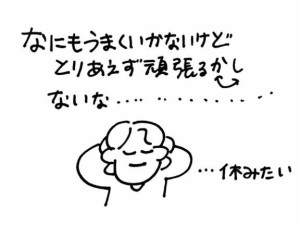 なにもうまくいかないけど
とりあえず頑張るかし
ないな‥‥‥‥‥‥
…休みたい